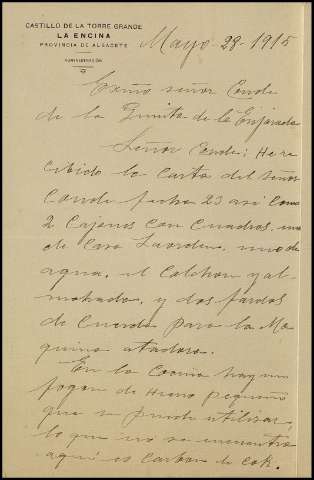 CASTILLO DE LA TORRE GRANDE
LA ENCINA
PROVINCIA DE ALBACETE
Mayo 28-1915
Exmo señor Conde
de la Quinta de la Enjarada
Señor Conde: He re
cibido la carta del señor
Conde fecha 23 asi como
2 Cajones con Cuadros, uno
de Casa Laorden, uno de
agua, el Colchon y al-
mohada, y dos fardos
de Cuerda para la Ma
quina atadora.
En la Cocina hay un
fogon de Hierro pequeño
que se puede utilizar,
lo que no se encuentra
aqui es Carbon de cok.